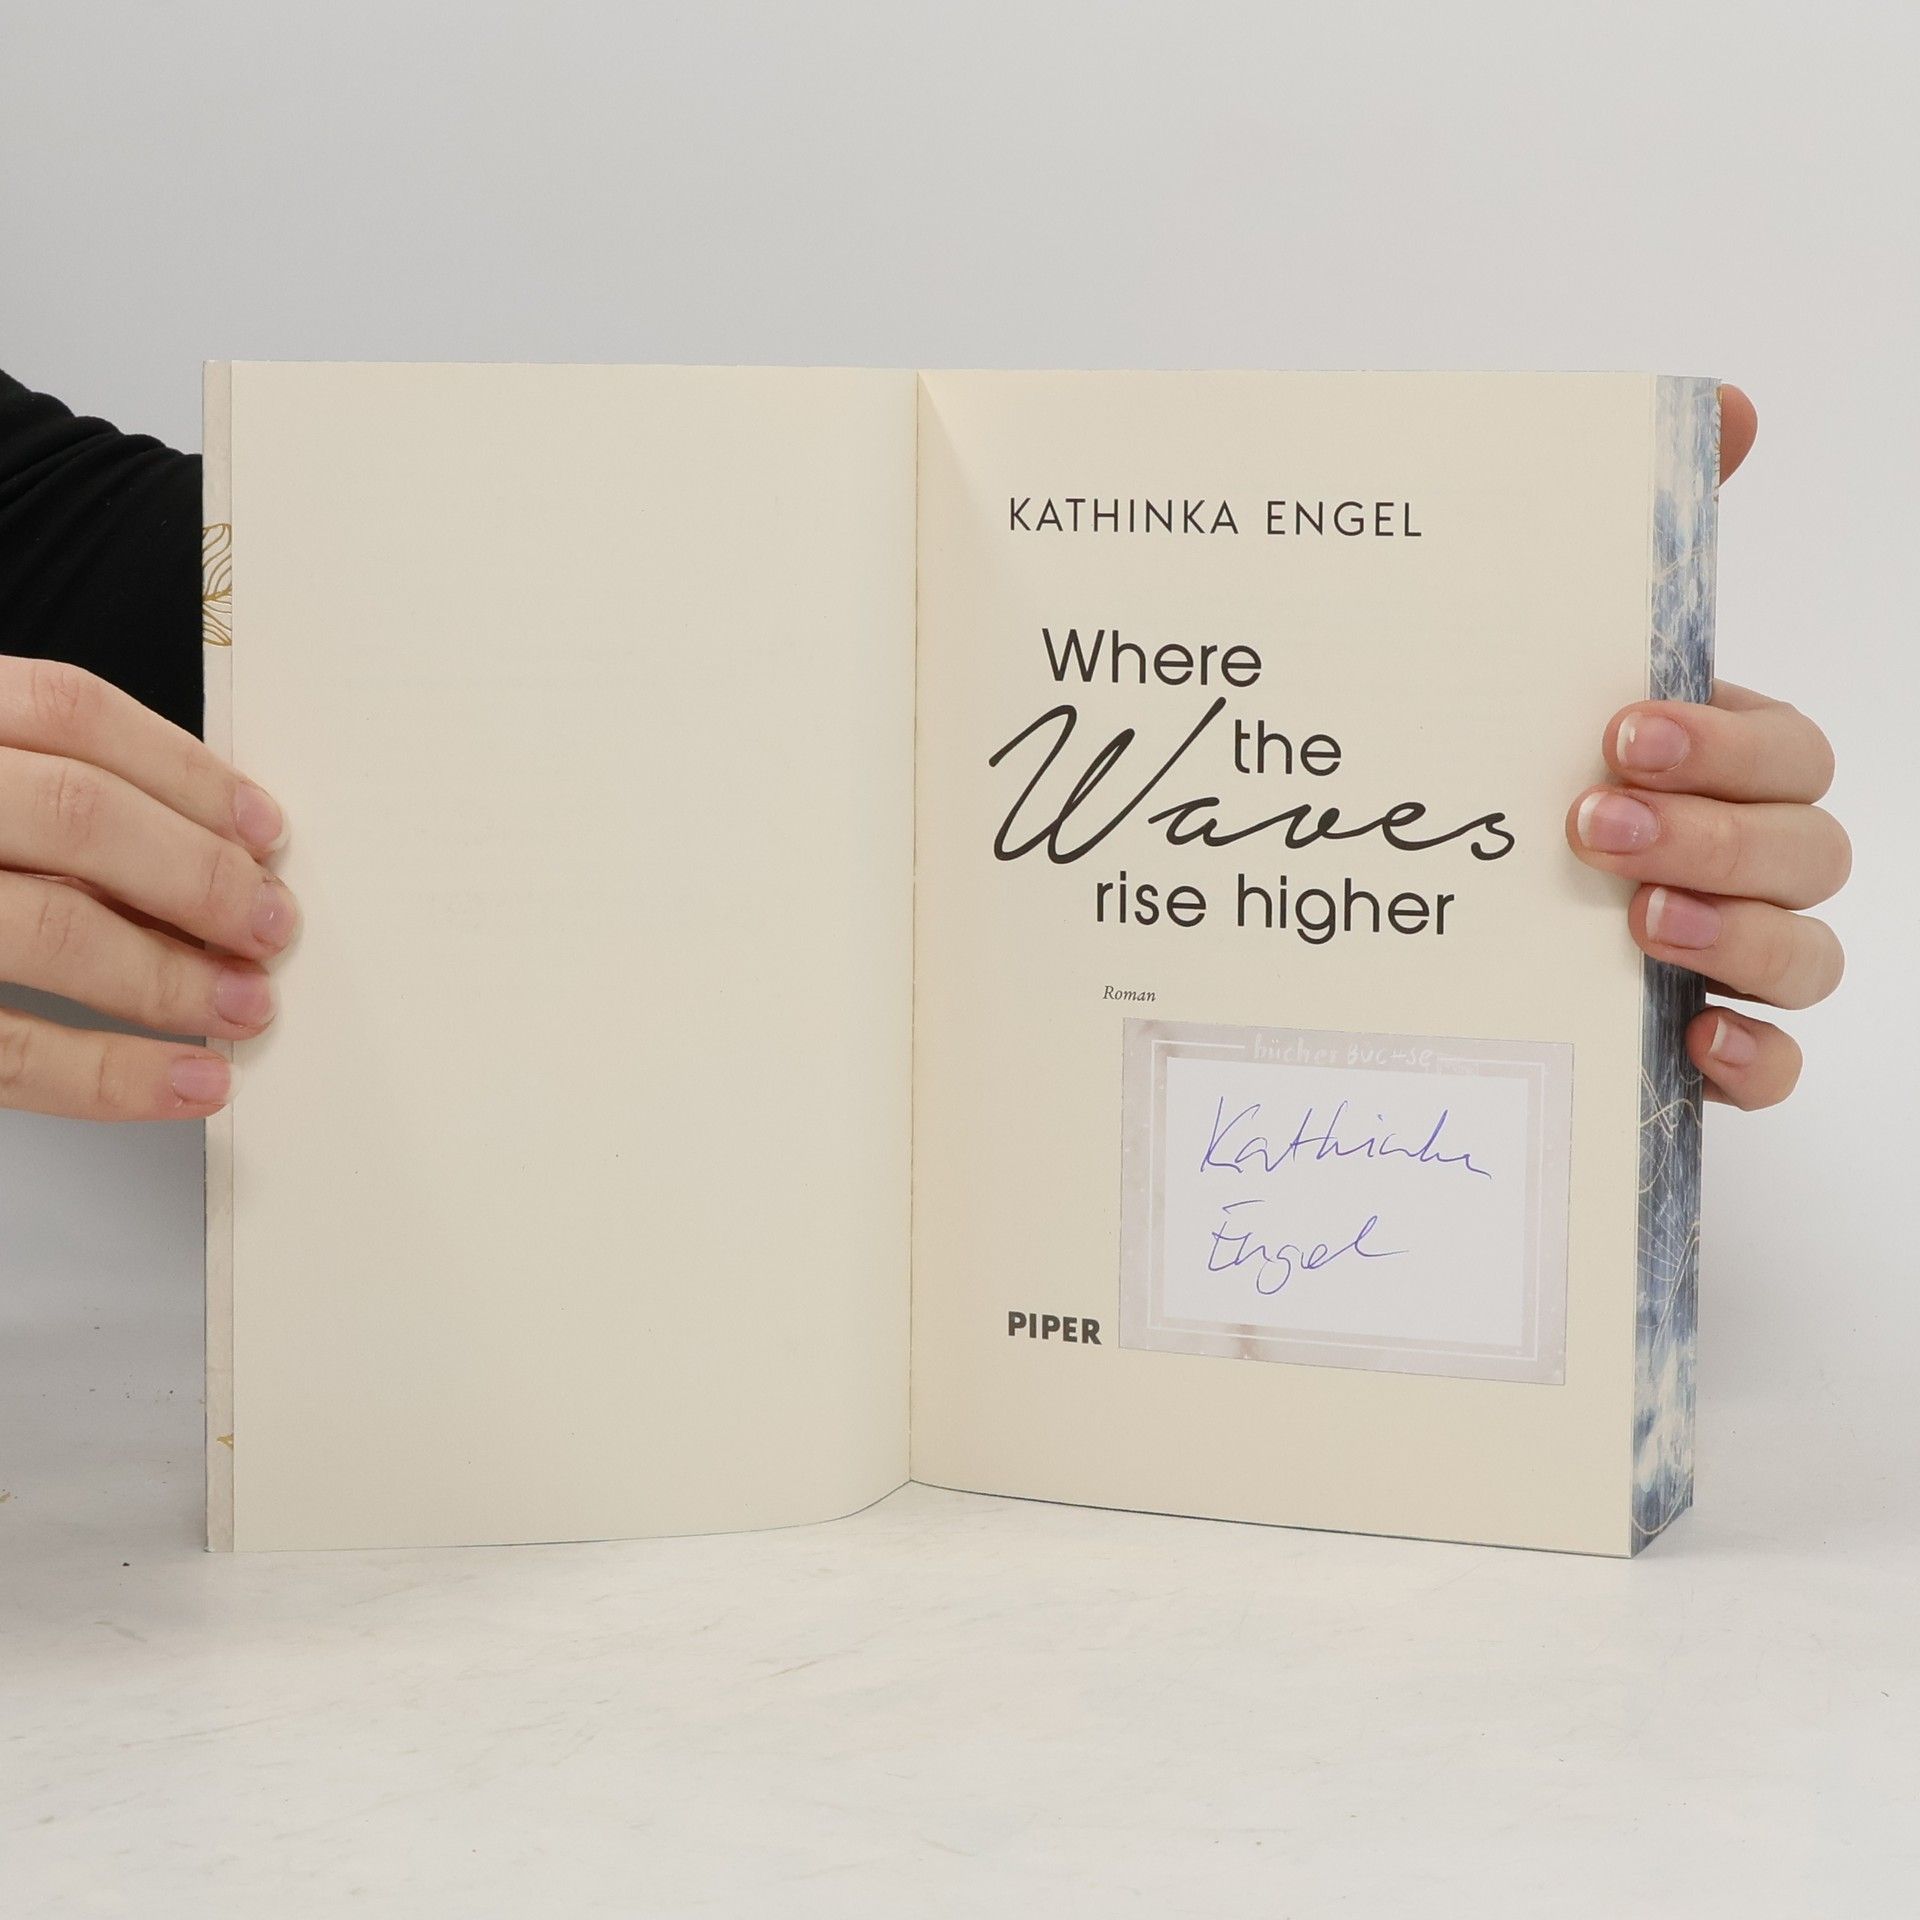 KATHINKA ENGEL
Where
the
Waves
rise higher
Roman
bücherBÜCHSE
Kathinka
Engel
PIPER